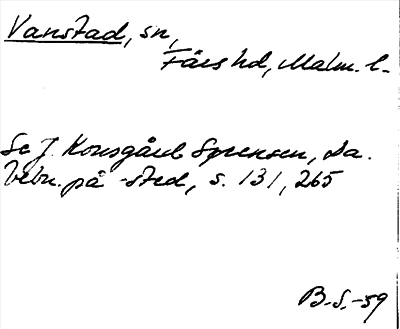 Vanstad, sn,
Färs hd, Malm. l.
Se J. Kousgård Sørensen, Da.
bebn. på -sted, s. 131, 265
B.S.-59